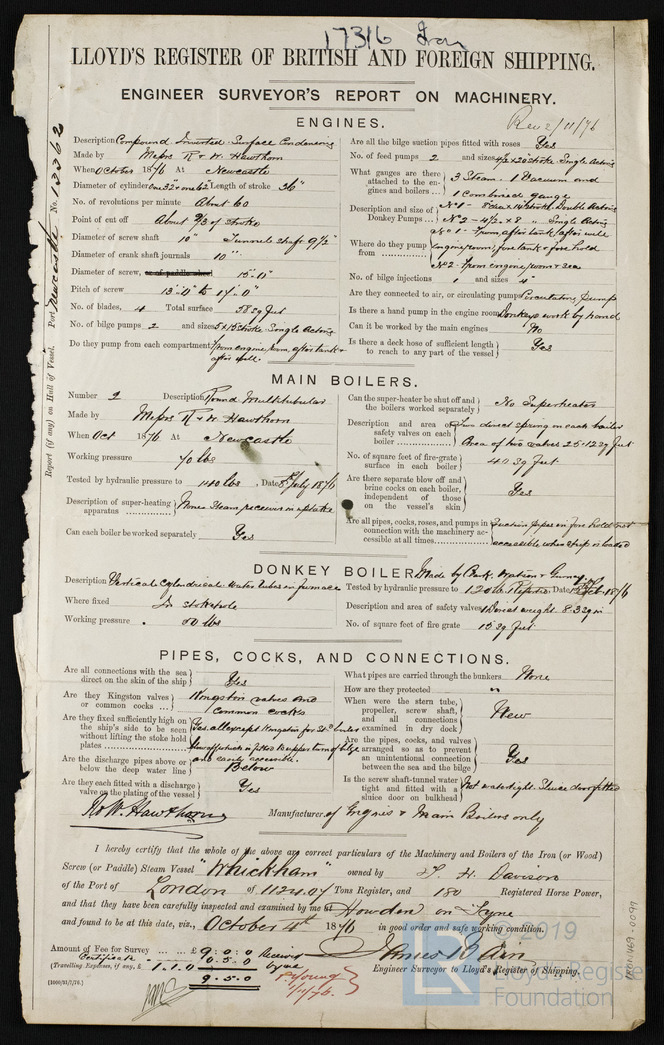 17316 Iron
LLOYD'S REGISTER OF BRITISH AND FOREIGN SHIPPING.
ENGINEER SURVEYOR'S REPORT ON MACHINERY.
Rec 2/11/76
ENGINES.
Description Compound Inverted Surface Condensing
Made by Messrs R & W. Hawthorn
When October 1876 At Newcastle
Diameter of cylinders one 32" & one 62 Length of stroke 36"
No. of revolutions per minute About 60
Point of cut off About 2/3 of stroke
Diameter of screw shaft 10" Tunnel shaft 9 1/2"
Diameter of crank shaft journals 10"
Diameter of screw, or of paddle wheel 15'.0"
Pitch of screw 13'.0" to 17'.0"
No. of blades, 4 Total surface 58 sq feet
No. of bilge pumps 2 and sizes stroke. Single Acting
Do they pump from each compartment from engine room, after tank & after well.
Are all the bilge suction pipes fitted with roses Yes
No. of feed pumps 2 and sizes stroke. Single Acting
What gauges are there attached to the engines and boilers 3 Steam. 1 Vacuum and 1 Combined gauge
Description and size of Donkey Pumps No 1 - stroke Double Acting
No 2 - 4 1/2 x 8 " Single Acting
Where do they pump from No 1 - From after tank, after well
engine room, fore tank & fore hold
No 2 - From engine room & sea
No. of bilge injections 1 and sizes 4"
Are they connected to air, or circulating pumps Circulating pumps
Is there a hand pump in the engine room Donkeys work by hand
Can it be worked by the main engines No
Is there a deck hose of sufficient length to reach to any part of the vessel Yes
MAIN BOILERS.
Number 2 Description Round Multitubular
Made by Messrs R & W. Hawthorn
When Oct 1876 At Newcastle
Working pressure 70 lbs
Tested by hydraulic pressure to 140 lbs, Date July 1876
Description of super-heating apparatus None. Steam receiver in uptake
Can each boiler be worked separately Yes
Can the super-heater be shut off and the boilers worked separately No Superheater
Description and area of safety valves on each boiler Two direct spring on each boiler
Area of two valves 25.12 sq feet
No. of square feet of fire-grate surface in each boiler 40 sq feet
Are there separate blow off and brine cocks on each boiler, independent of those on the vessel's skin Yes
Are all pipes, cocks, roses, and pumps in connection with the machinery accessible at all times Suction pipes in fore hold not accessible when ship is loaded
DONKEY BOILER. Made by Clark, Watson & Gurney
Description Vertical Cylindrical Water tubes in furnace
Where fixed In stokehole
Working pressure 50 lbs
Tested by hydraulic pressure to 120 lbs. Date 1876
Description and area of safety valves 1 Direct weight. 8.3 sq in
No. of square feet of fire grate 15 sq feet
PIPES, COCKS, AND CONNECTIONS.
Are all connections with the sea direct on the skin of the ship Yes
Are they Kingston valves or common cocks Kingston valves and common cocks
Are they fixed sufficiently high on the ship's side to be seen without lifting the stoke hold plates Yes. all except Kingston for blow off which is fitted to upper turn of bilge and easily accessible.
Are the discharge pipes above or below the deep water line Below
Are they each fitted with a discharge valve on the plating of the vessel Yes
What pipes are carried through the bunkers None
How are they protected "
When were the stern tube, propeller, screw shaft, and all connections examined in dry dock New
Are the pipes, cocks, and valves arranged so as to prevent an unintentional connection between the sea and the bilge Yes
Is the screw shaft-tunnel water tight and fitted with a sluice door on bulkhead Not watertight. Sluice door fitted
R & W. Hawthorn Manufacturer of Engines & Main Boilers only
I hereby certify that the whole of the above are correct particulars of the Machinery and Boilers of the Iron (or Wood)
Screw (or Paddle) Steam Vessel "Whickham" owned by T. H. Davison
of the Port of London of 1124.07 Tons Register, and 180 Registered Horse Power,
and that they have been carefully inspected and examined by me at Howden on Tyne
and found to be at this date, viz., October 4th 1876 in good order and safe working condition.
Amount of Fee for Survey £ 9 : 0 : 0 Received by me
Certificate 0.5.0
(Travelling Expenses, if any, £ 1.1.0)
9.5.0
P. Young 1/11/76.
Engineer Surveyor to Lloyd's Register of Shipping.
[1000/31/7/76.]
Report (if any) on Hull of Vessel. Port Newcastle No. 13362
IRON469-0099
© 2019
Lloyd's Register
Foundation